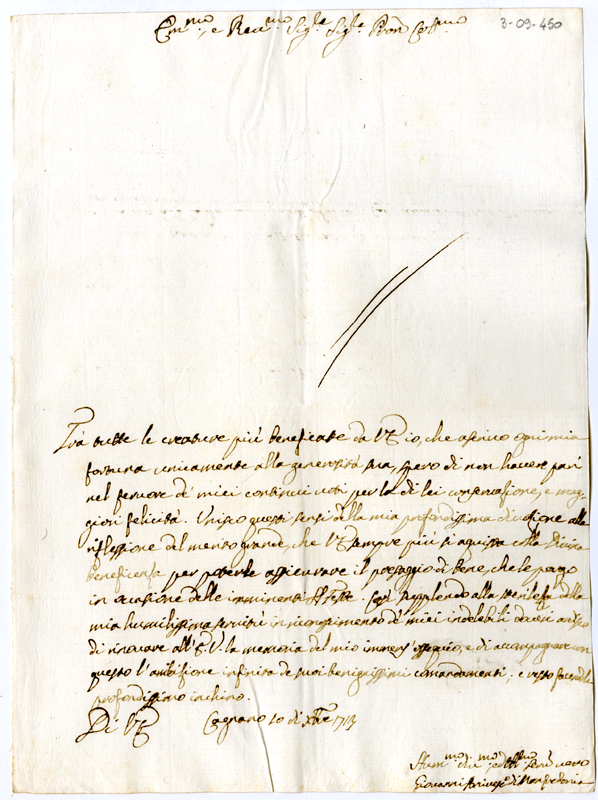 Em.mo, e Rev.mo Sig.re Sig.re Pron Col.mo
3-09-450
Trà tutte le creature più beneficate da V.E. io, che ascrivo ogni mia
fortuna unicamente alla generosità sua, spero di non havere pari
nel fervore de' miei continui voti per la di lei conservazione, e mag-
giori felicità. Unisco questi sensi della mia profondissima divozione alla
riflessione del merito grande, che V.E. sempre più si aquista colla Divina
beneficenza per poterle assicurare il presaggio di bene, che le porgo
in occasione delle imminenti S.te Feste. Così supplendo alla sterilità della
mia humilissima servitù in riconoscimento de' miei indelebili doveri ardisco
di rinovare all'E.V. la memoria del mio immenso ossequio, e di accompagnare con
questo l'ambizione infinita de' suoi benignissimi comandamenti; e resto facendole
profondissimo inchino.
Di V.E. Cagnano 10 di Xbre 1713
Hum.mo Div.mo et Obl.mo serv.re vero
Giovanni Arcivesc.o di Manfredonia